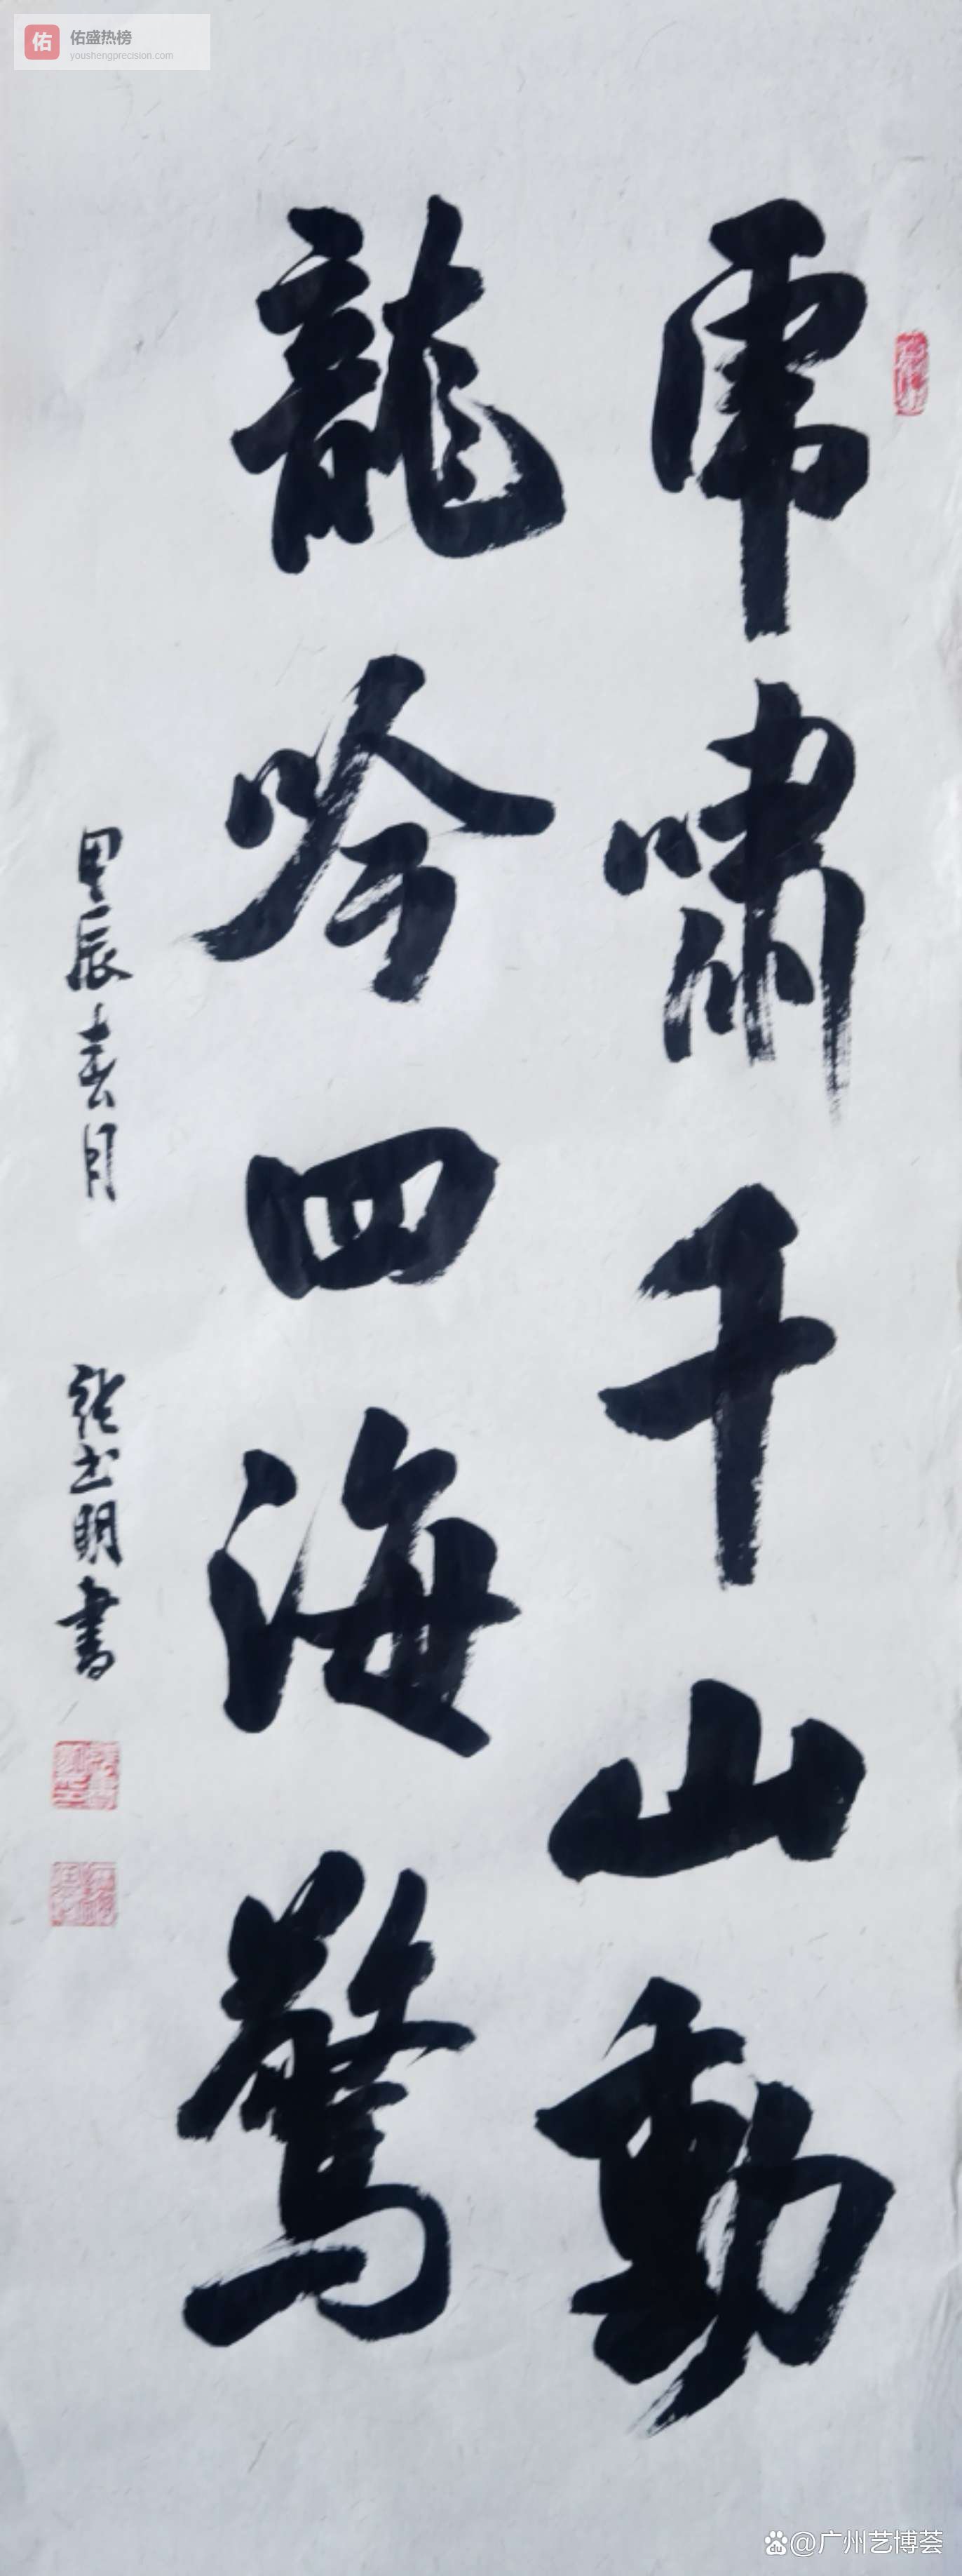 佑 佑盛热榜
youshengprecision.com
虎嘯千山動
龍吟四海驚
甲辰春月 張书明書
du @广州艺博荟